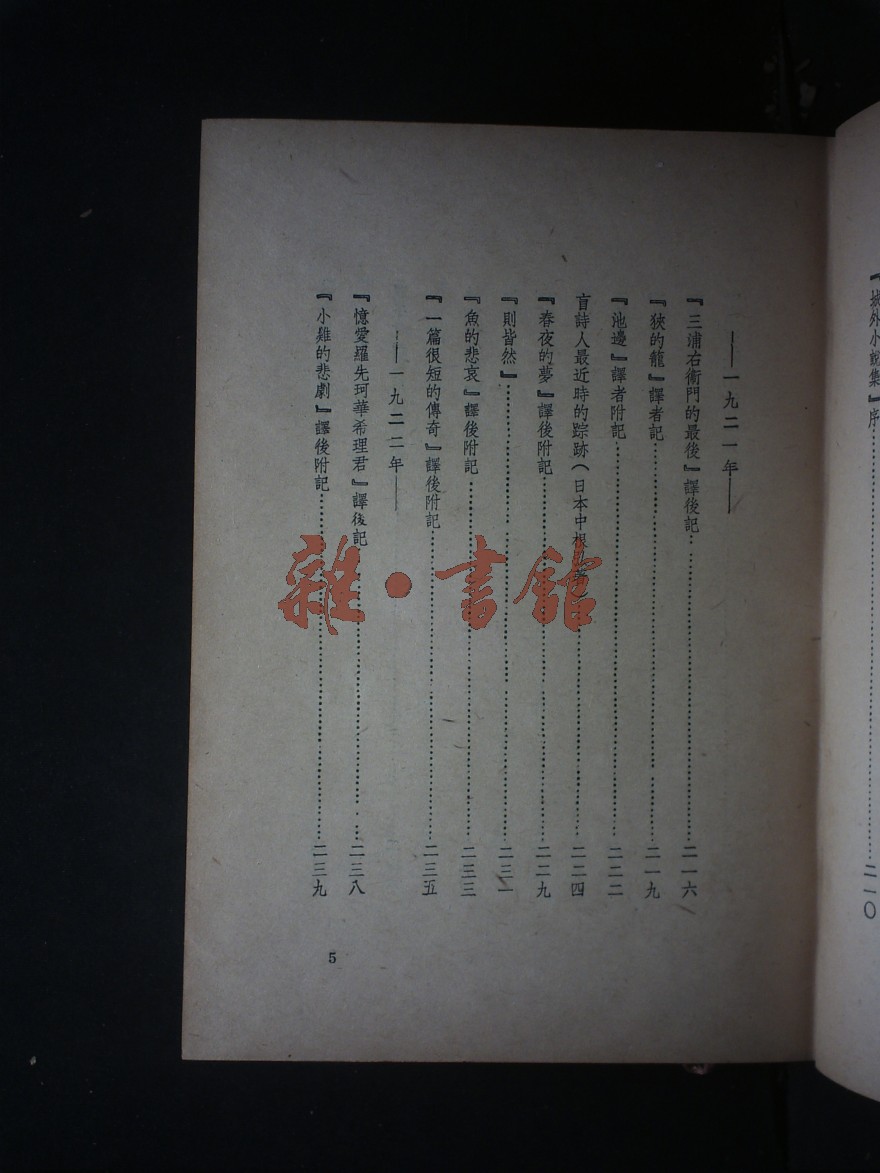 『域外小說集』序……二一〇
——一九二一年——
『三浦右衞門的最後』譯後記……二一六
『狹的籠』譯者記……二一九
『池邊』譯者附記……二二二
盲詩人最近時的踪跡(日本中根……二二四
『春夜的夢』譯後附記……二二九
『則皆然』……二三一
『魚的悲哀』譯後附記……二三三
『一篇很短的傳奇』譯後附記……二三五
——一九二二年——
『憶愛羅先珂華希理君』譯後記……二三八
『小雞的悲劇』譯後附記……二三九
5
雜·書館